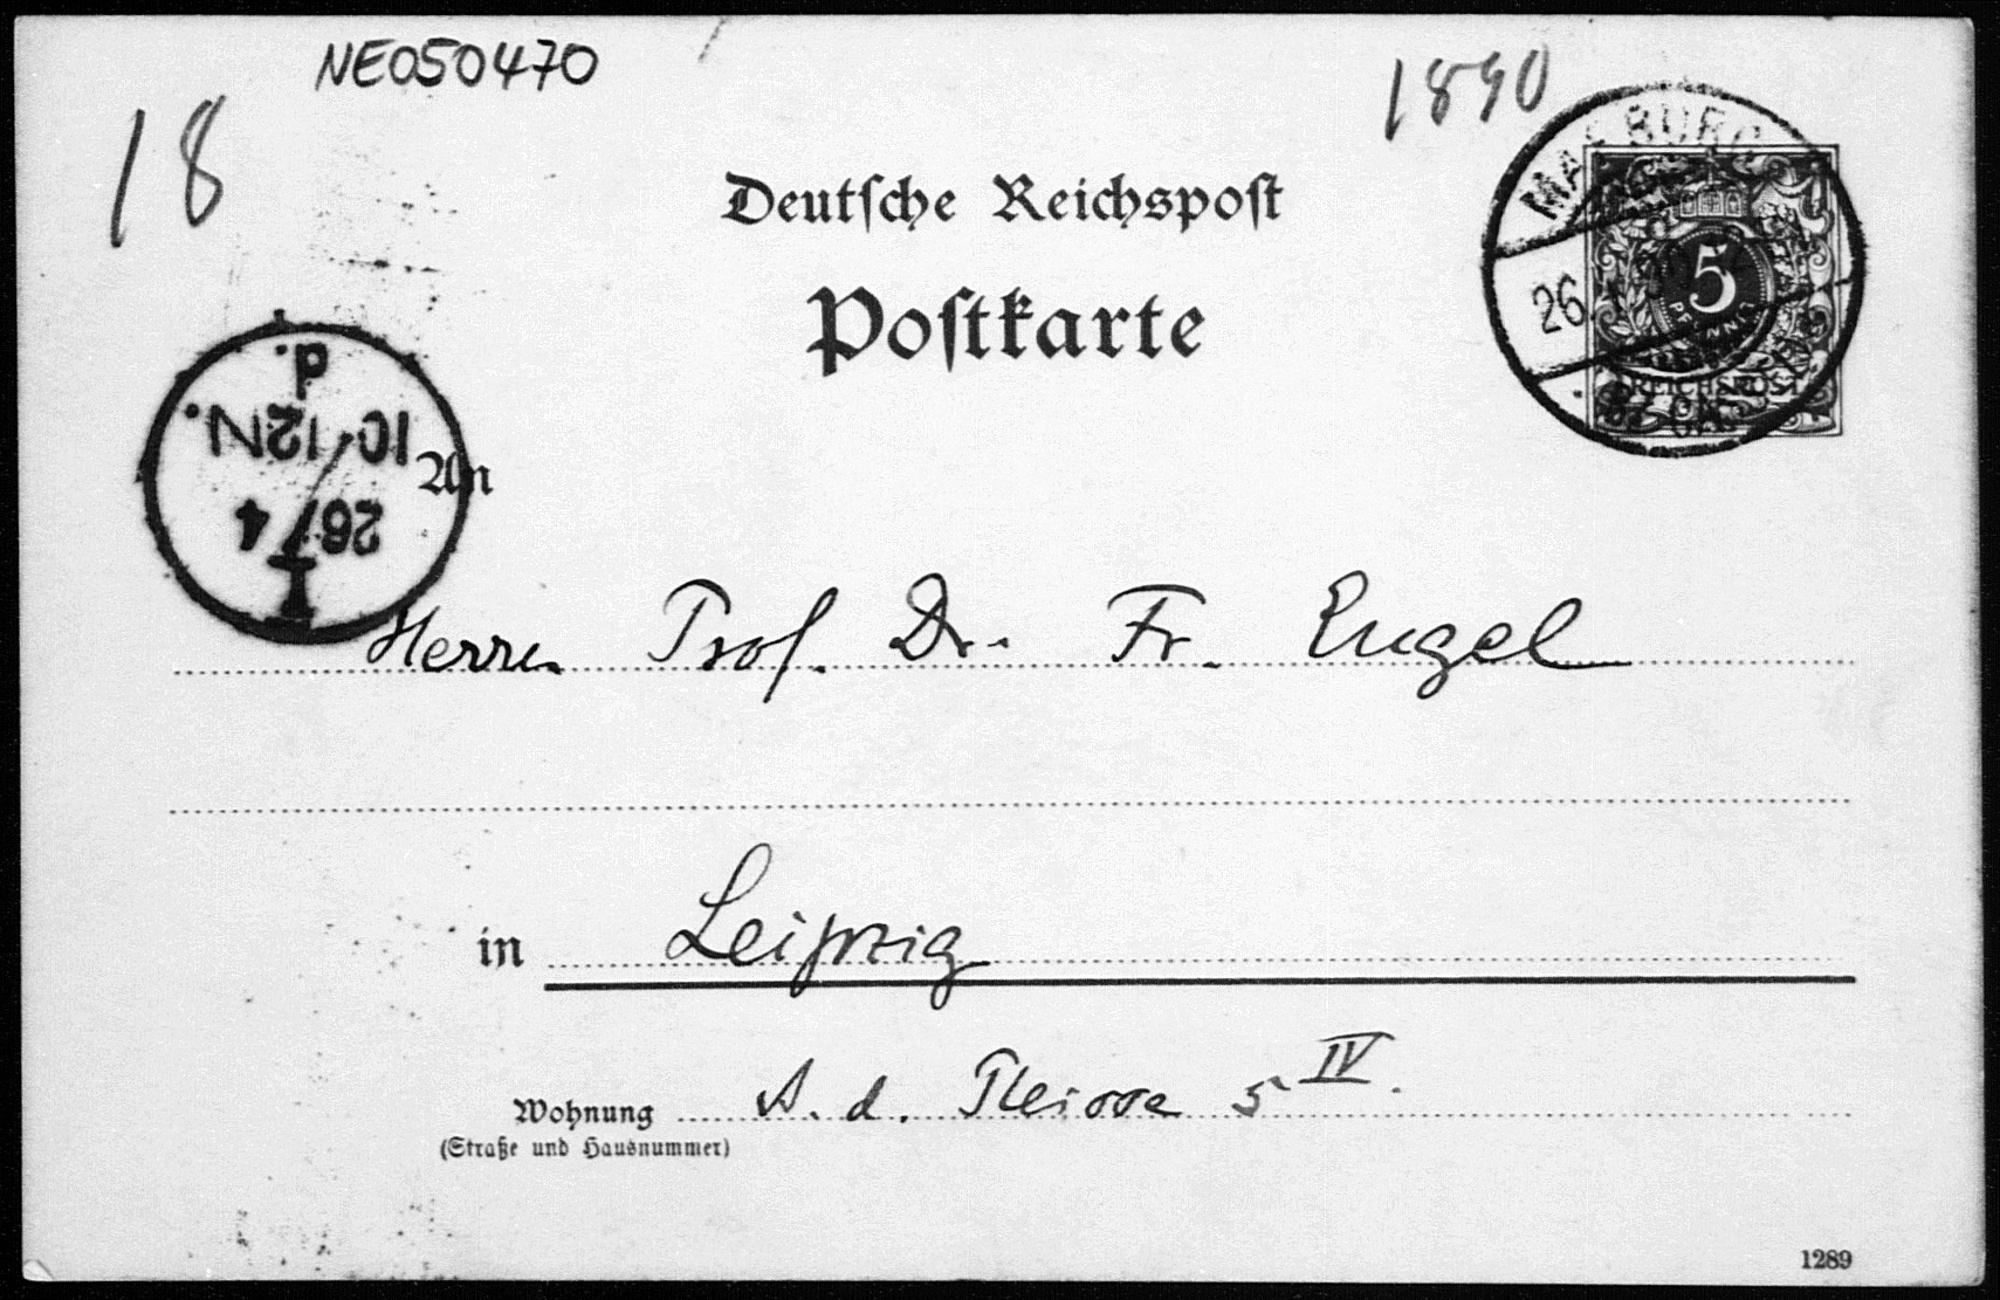 NE050470
1890
18
Deutsche Reichspost
Postkarte
MARBURG
26.
5
PFENNIG
REICHSPOST
I
26/4
10-12N.
d.
An
Herrn Prof. Dr. Fr. Engel
in Leipzig
Wohnung A. d. Pleisse 5 IV.
(Straße und Hausnummer)
1289